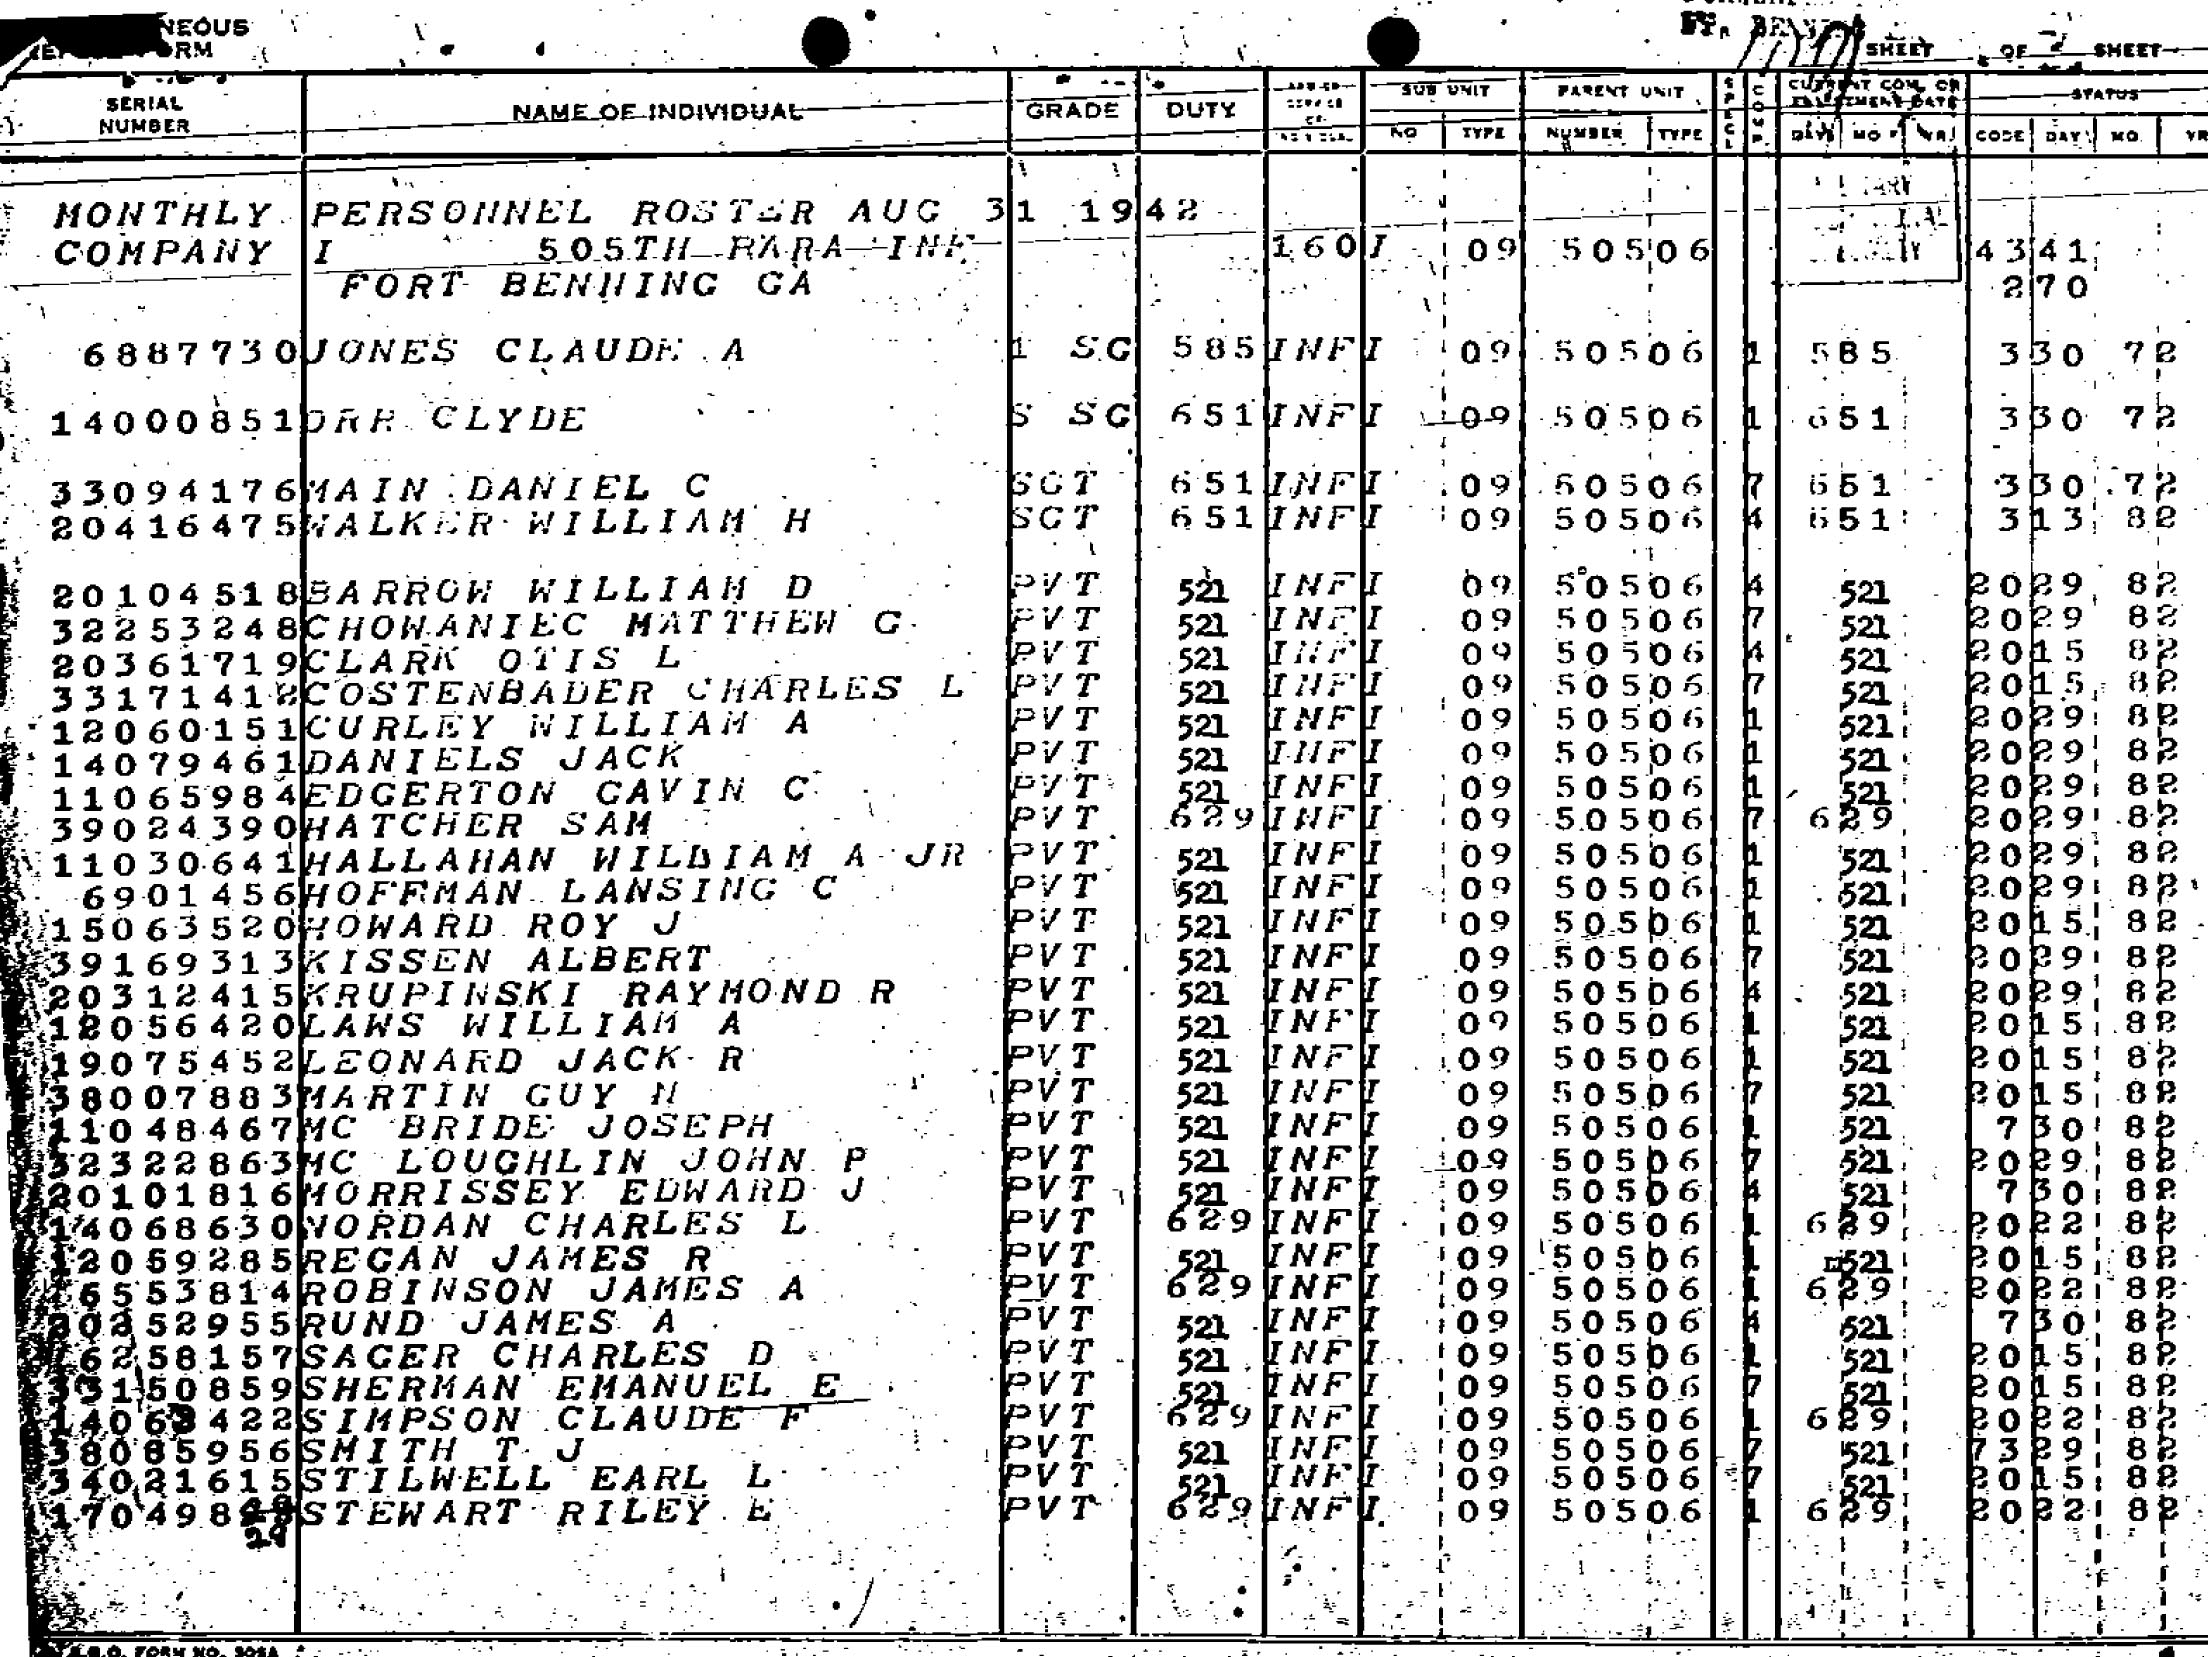 NEOUS
RM
SHEET OF 2 SHEET
SERIAL NUMBER NAME OF INDIVIDUAL GRADE DUTY SUB UNIT PARENT UNIT CURRENT COM. OR ENLISTMENT DATE STATUS
NO TYPE NUMBER TYPE DAY MO YR. CODE DAY MO. YR
MONTHLY PERSONNEL ROSTER AUG 31 1942
COMPANY I 505TH PARA INF 160I 09 50506 4341
FORT BENNING GA 270
6887730 JONES CLAUDE A 1 SG 585 INF I 09 50506 1 585 330 72
14000851 ORR CLYDE S SG 651 INF I 09 50506 1 651 330 72
33094176 MAIN DANIEL C SGT 651 INF I 09 50506 7 651 330 72
20416475 WALKER WILLIAM H SGT 651 INF I 09 50506 4 651 313 82
20104518 BARROW WILLIAM D PVT 521 INF I 09 50506 4 521 2029 82
32253248 CHOWANIEC MATTHEW G PVT 521 INF I 09 50506 7 521 2029 82
20361719 CLARK OTIS L PVT 521 INF I 09 50506 4 521 2015 82
33171412 COSTENBADER CHARLES L PVT 521 INF I 09 50506 7 521 2015 82
12060151 CURLEY WILLIAM A PVT 521 INF I 09 50506 1 521 2029 82
14079461 DANIELS JACK PVT 521 INF I 09 50506 1 521 2029 82
11065984 EDGERTON GAVIN C PVT 521 INF I 09 50506 1 521 2029 82
39024390 HATCHER SAM PVT 629 INF I 09 50506 7 629 2029 82
11030641 HALLAHAN WILLIAM A JR PVT 521 INF I 09 50506 1 521 2029 82
6901456 HOFFMAN LANSING C PVT 521 INF I 09 50506 1 521 2029 82
15063520 HOWARD ROY J PVT 521 INF I 09 50506 1 521 2015 82
39169313 KISSEN ALBERT PVT 521 INF I 09 50506 7 521 2029 82
20312415 KRUPINSKI RAYMOND R PVT 521 INF I 09 50506 4 521 2029 82
12056420 LAWS WILLIAM A PVT 521 INF I 09 50506 1 521 2015 82
19075452 LEONARD JACK R PVT 521 INF I 09 50506 1 521 2015 82
38007883 MARTIN GUY N PVT 521 INF I 09 50506 7 521 2015 82
11048467 MC BRIDE JOSEPH PVT 521 INF I 09 50506 1 521 730 82
32322863 MC LOUGHLIN JOHN P PVT 521 INF I 09 50506 7 521 2029 82
20101816 MORRISSEY EDWARD J PVT 521 INF I 09 50506 4 521 730 82
14068630 NORDAN CHARLES L PVT 629 INF I 09 50506 1 629 2022 82
12059285 REGAN JAMES R PVT 521 INF I 09 50506 1 521 2015 82
6553814 ROBINSON JAMES A PVT 629 INF I 09 50506 1 629 2022 82
20252955 RUND JAMES A PVT 521 INF I 09 50506 4 521 730 82
16258157 SAGER CHARLES D PVT 521 INF I 09 50506 1 521 2015 82
33150859 SHERMAN EMANUEL E PVT 521 INF I 09 50506 7 521 2015 82
14063422 SIMPSON CLAUDE F PVT 629 INF I 09 50506 1 629 2022 82
38085956 SMITH T J PVT 521 INF I 09 50506 7 521 7329 82
34021615 STILWELL EARL L PVT 521 INF I 09 50506 7 521 2015 82
STEWART RILEY E PVT 629 INF I 09 50506 1 629 2022 82
29
FORM NO. 303A